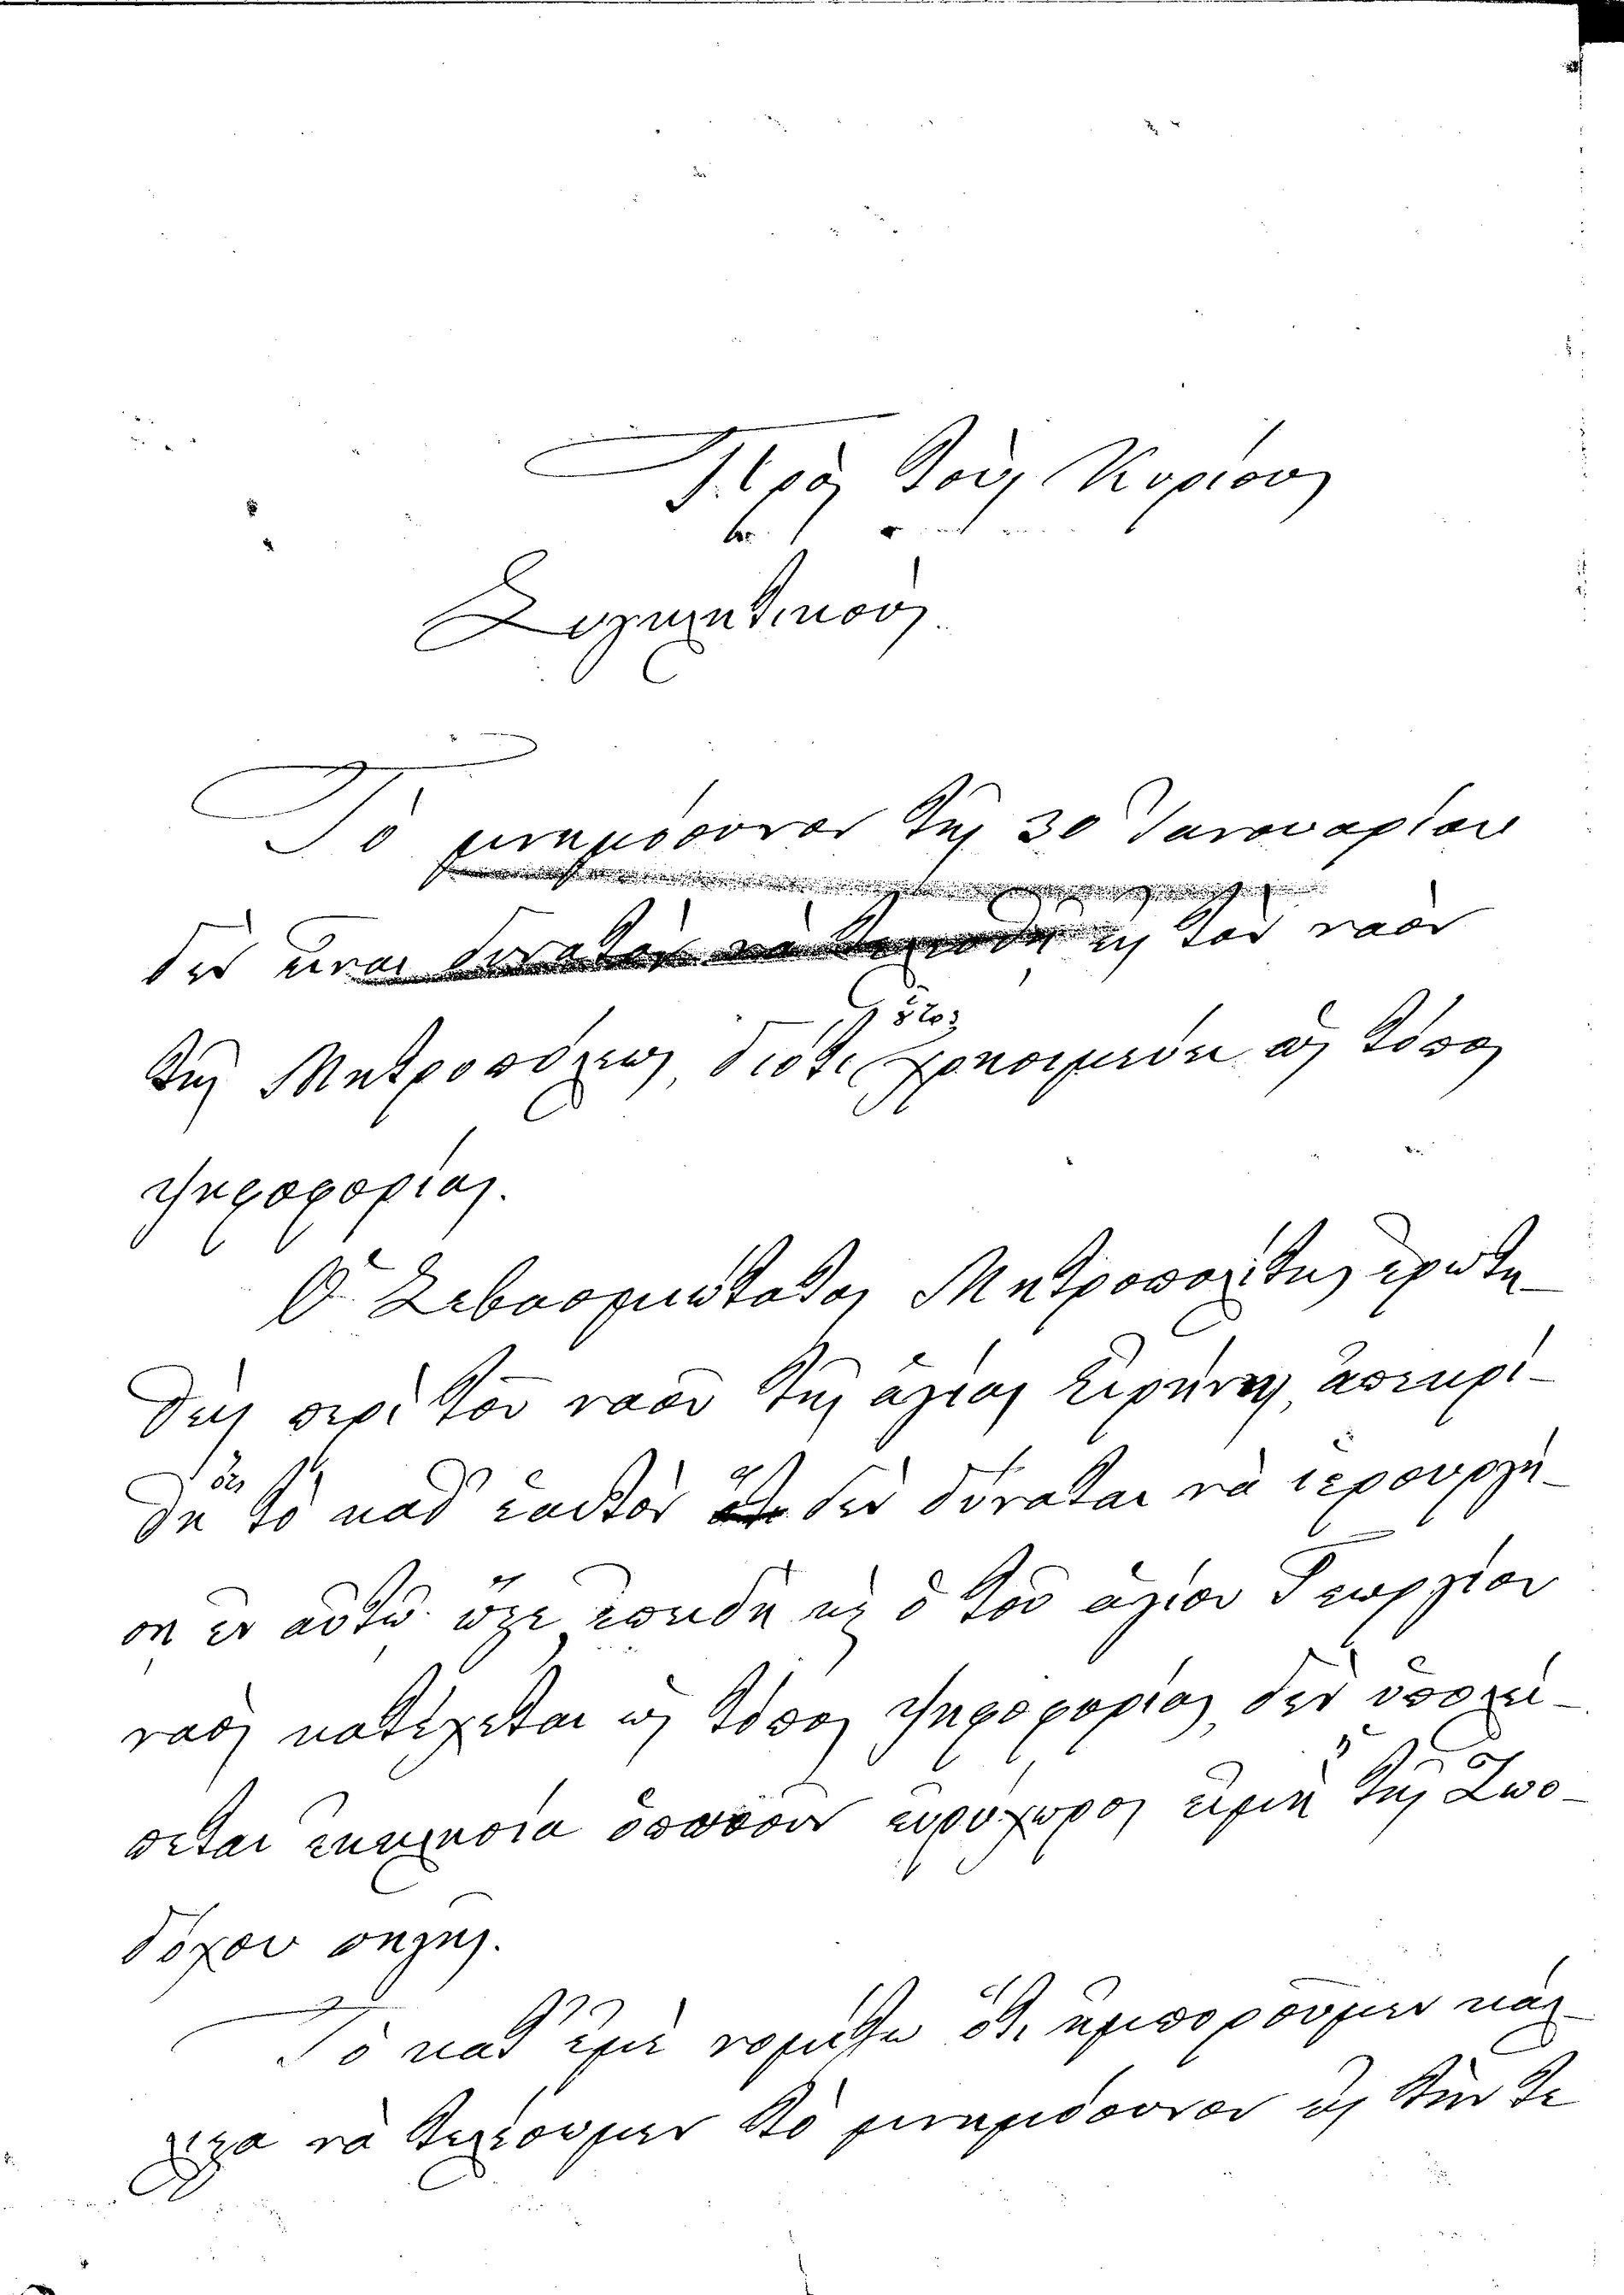 Πρὸς τοὺς Κυρίους
Συλλητικούς.
Τὸ μνημόσυνον τῆς 30 Ἰανουαρίου
δὲν εἶναι δυνατὸν νὰ τελεσθῇ εἰς τὸν ναὸν
τῆς Μητροπόλεως, διότι χρησιμεύει ὡς τόπος
ψηφοφορίας.
Ὁ Σεβασμιώτατος Μητροπολίτης ἐρωτη-
θεὶς περὶ τοῦ ναοῦ τῆς ἁγίας Εἰρήνης, ἀπεκρί-
θη τὸ καθ' ἑαυτὸν δὲν δύναται νὰ ἱερουργή-
σῃ ἐν αὐτῷ· ἐπειδὴ καὶ ὁ τοῦ ἁγίου Γεωργίου
ναὸς κατέχεται ὡς τόπος ψηφοφορίας, δὲν ὑπολεί-
πεται ἐκκλησία ὁπωσοῦν εὐρύχωρος εἰμὴ τῆς Ζωο-
δόχου πηγῆς.
Τὸ κατ' ἐμὲ νομίζω ὅτι ἠμποροῦμεν κάλ-
λιστα νὰ τελέσωμεν τὸ μνημόσυνον εἰς τὴν τε